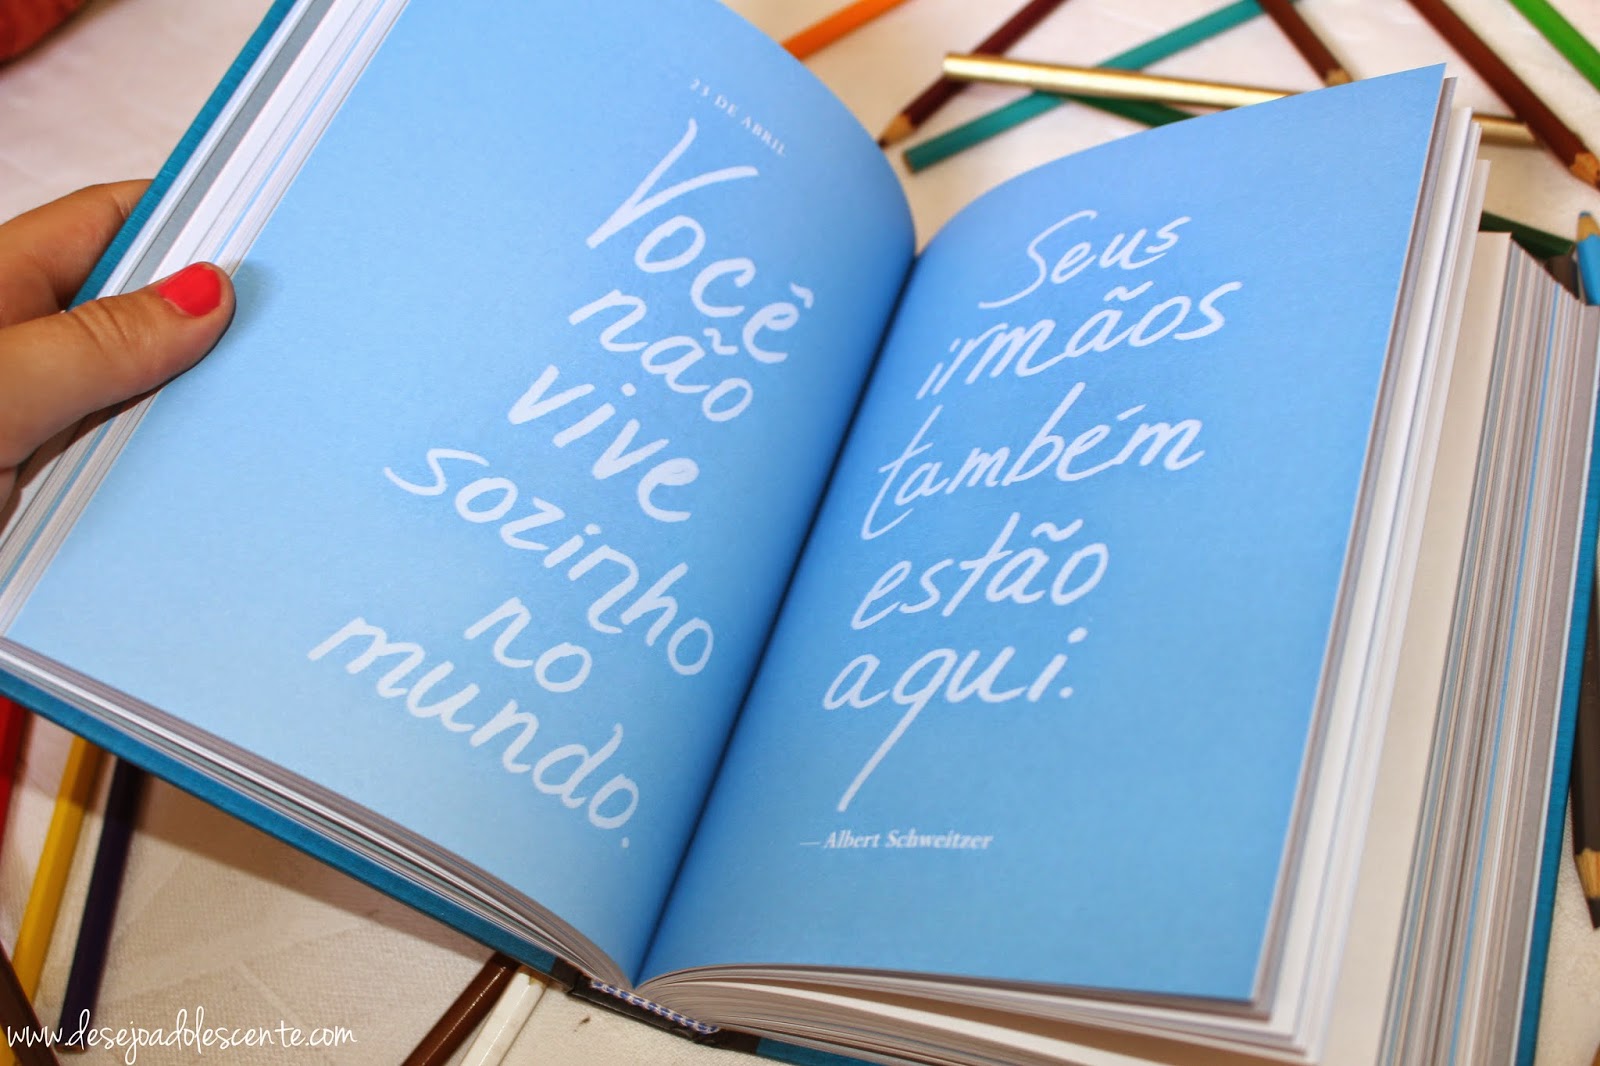 23 DE ABRIL
Você
não
vive
sozinho
no
mundo.
Seus
irmãos
também
estão
aqui.
— Albert Schweitzer
www.desejoadolescente.com